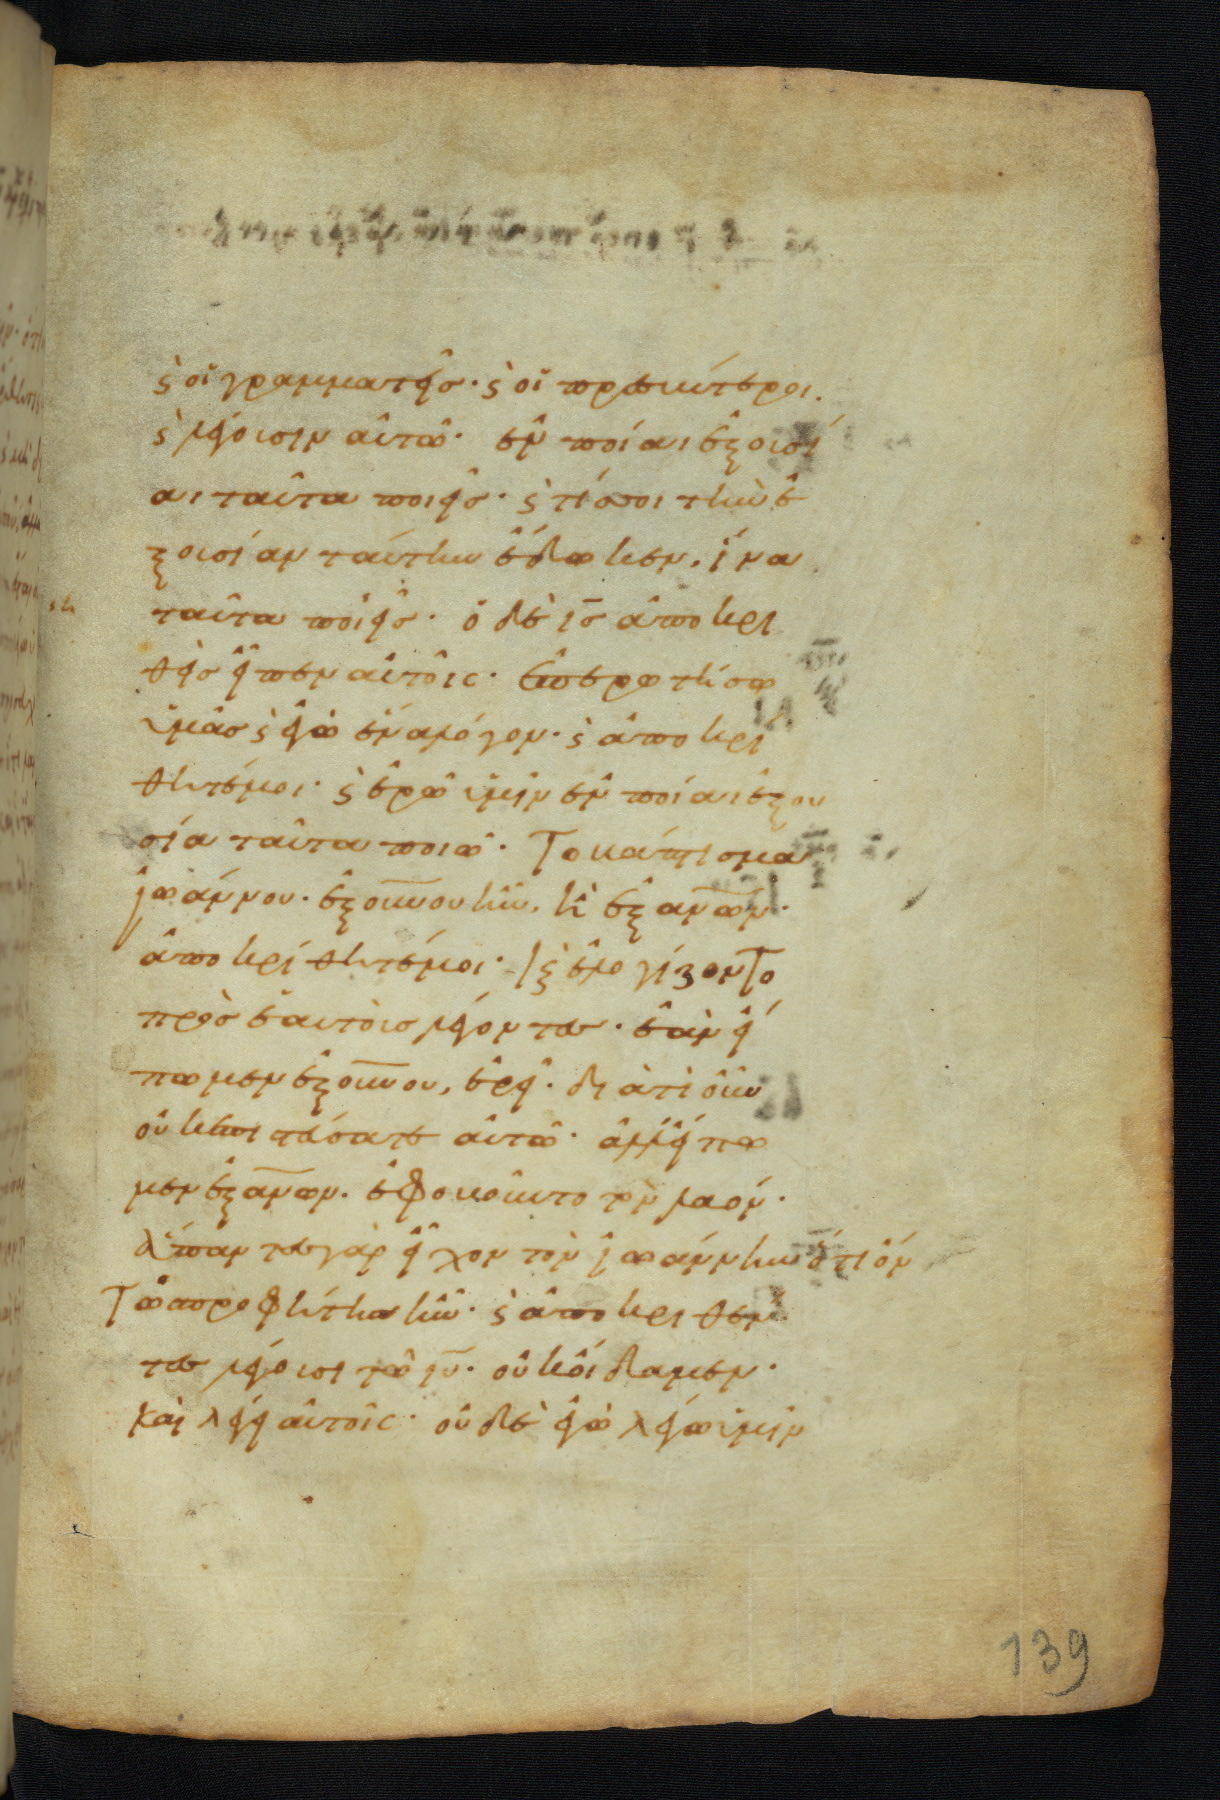 ϗ οἱ γραμματεῖς· ϗ οἱ πρεσβύτεροι.
ϗ λέγουσιν αὐτῶ· ἐν ποία ἐξουσί
αι ταῦτα ποιεῖς· ϗ τίς σοι τὴν ἐ
ξουσίαν ταύτην ἔδωκεν, ἵνα
ταῦτα ποιεῖς· ὁ δὲ ις ἀποκρι
θεὶς εἶπεν αὐτοῖς· ἐπερωτήσω
ὑμᾶς ϗ ἐγὼ ἕνα λόγον· ϗ ἀποκρί
θητέ μοι· ϗ ἐρῶ ὑμῖν ἐν ποίαι ἐξου
σία ταῦτα ποιῶ· Το βάπτισμα
ἰωάννου· ἐξ οὐνου ἦν, ἢ ἐξ ανων·
ἀποκρίθητέ μοι· ϗ ἐλογίζοντο
πρὸς ἑαυτοὺς λέγοντες· ἐὰν εἴ
πωμεν ἐξ οὐνου, ἐρεῖ· διὰ τί οὖν
οὐκ ἐπιστεύσατε αὐτῶ· ἀλλ' εἴπω
μεν ἐξ ανων· ἐφοβοῦντο τὸν λαόν·
ἅπαντες γὰρ εἶχον τὸν ἰωάννην ὅτι ὄν
τως προφήτης ἦν· ϗ ἀποκριθέν
τες λέγουσι τῶ ιυ· οὐκ οἴδαμεν·
καὶ λέγει αὐτοῖς· οὐδὲ ἐγὼ λέγω ὑμῖν
139